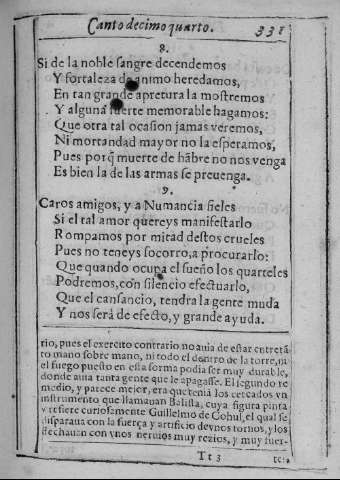 Canto decimo quarto. 331
8.
Si de la noble sangre decendemos
Y fortaleza de animo heredamos,
En tan grande apretura la mostremos
Y alguna suerte memorable hagamos:
Que otra tal ocasion jamas veremos,
Ni mortandad mayor no la esperamos,
Pues porq̃ muerte de hãbre no nos venga
Es bien la de las armas se preuenga.
9.
Caros amigos, y a Numancia fieles
Si el tal amor quereys manifestarlo
Rompamos por mitad destos crueles
Pues no teneys socorro, a procurarlo:
Que quando ocupa el sueño los quarteles
Podremos, con silencio efectuarlo,
Que el cansancio, tendra la gente muda
Y nos será de efecto, y grande ayuda.
rio, pues el exercito contrario no auia de estar entretã
to mano sobre mano, ni todo el dentro de la torre, ni
el fuego puesto en esta forma podia ser muy durable,
donde auia tanta gente que le apagasse. El segundo re
medio, y parece mejor, era que tenia los cercados vn
instrumento que llamauan Balista, cuya figura pinta
y refiere curiosamente Guillelmo de Cohul, el qual se
disparaua con la fuerça y artificio de vnos tornos, y los
flechauan con vnos neruios muy rezios, y muy fuer-
Tt 3